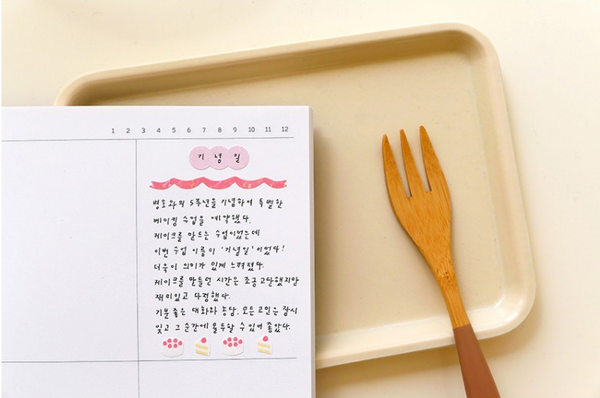 1 2 3 4 5 6 7 8 9 10 11 12
기 념 일
병호와의 5주년을 기념하여 특별한
베이킹 수업을 예약했다.
케이크를 만드는 수업이었는데
이번 수업 이름이 '기념일'이었다!
더욱이 의미가 있게 느껴졌다.
케이크를 만들던 시간은 조금 고단했지만
재미있고 다정했다.
기분 좋은 대화와 농담. 모든 고민은 잠시
잊고 그 순간에 몰두할 수 있어 좋았다.